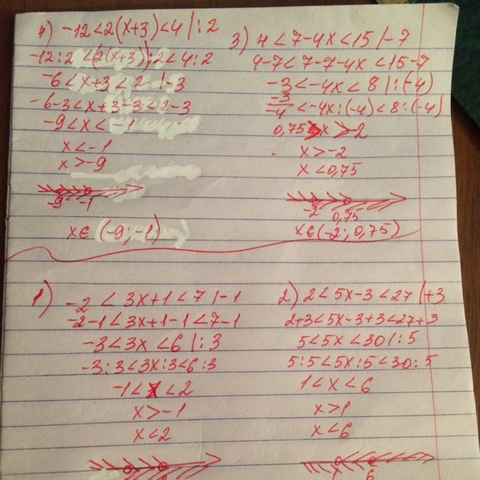 4) -12<2(x+3)<4 | :2
-12:2<2(x+3):2<4:2
-6<x+3<2 | -3
-6-3<x+3-3<2-3
-9<x<-1
x<-1
x>-9
-9 -1
x∈ (-9; -1)
3) 4<7-4x<15 | -7
4-7<7-7-4x<15-7
-3<-4x<8 | :(-4)
-3/-4<-4x:(-4)<8:(-4)
0,75>x>-2
x>-2
x<0,75
-2 0,75
x∈(-2; 0,75)
1) -2<3x+1<7 | -1
-2-1<3x+1-1<7-1
-3<3x<6 | :3
-3:3<3x:3<6:3
-1<x<2
x>-1
x<2
2) 2<5x-3<27 | +3
2+3<5x-3+3<27+3
5<5x<30 | :5
5:5<5x:5<30:5
1<x<6
x>1
x<6
1 6